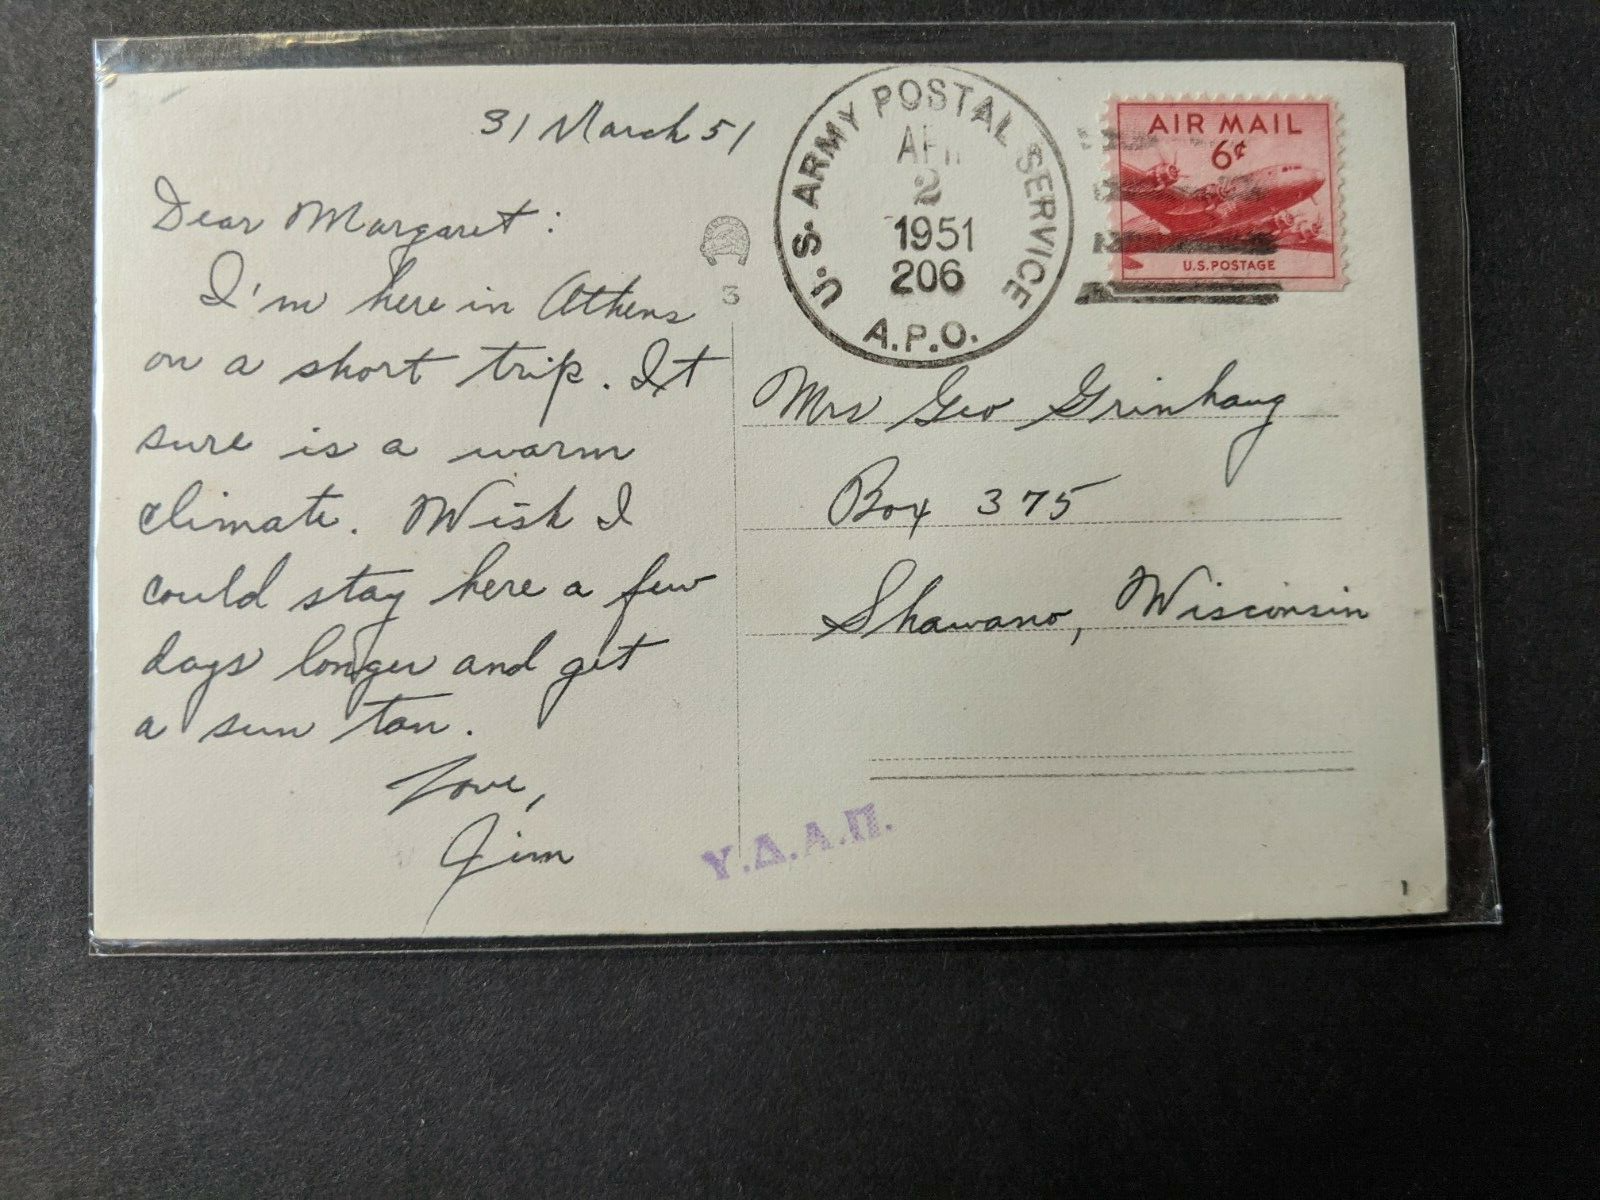 31 March 51
Dear Margaret:
I'm here in Athens
on a short trip. It
sure is a warm
climate. Wish I
could stay here a few
days longer and get
a sun tan.
Love,
Jim
3
U.S. ARMY POSTAL SERVICE
APR
2
1951
206
A.P.O.
AIR MAIL
6¢
U.S. POSTAGE
Mrs Geo Grinhaug
Box 375
Shawano, Wisconsin
Υ.Δ.Α.Π.